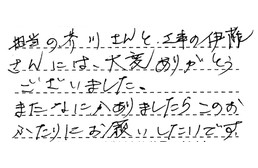 担当の芥川さんと工事の伊藤
さんには、大変ありがとう
ございました。
またなにかありましたらこのお
ふたりにお願いしたいです